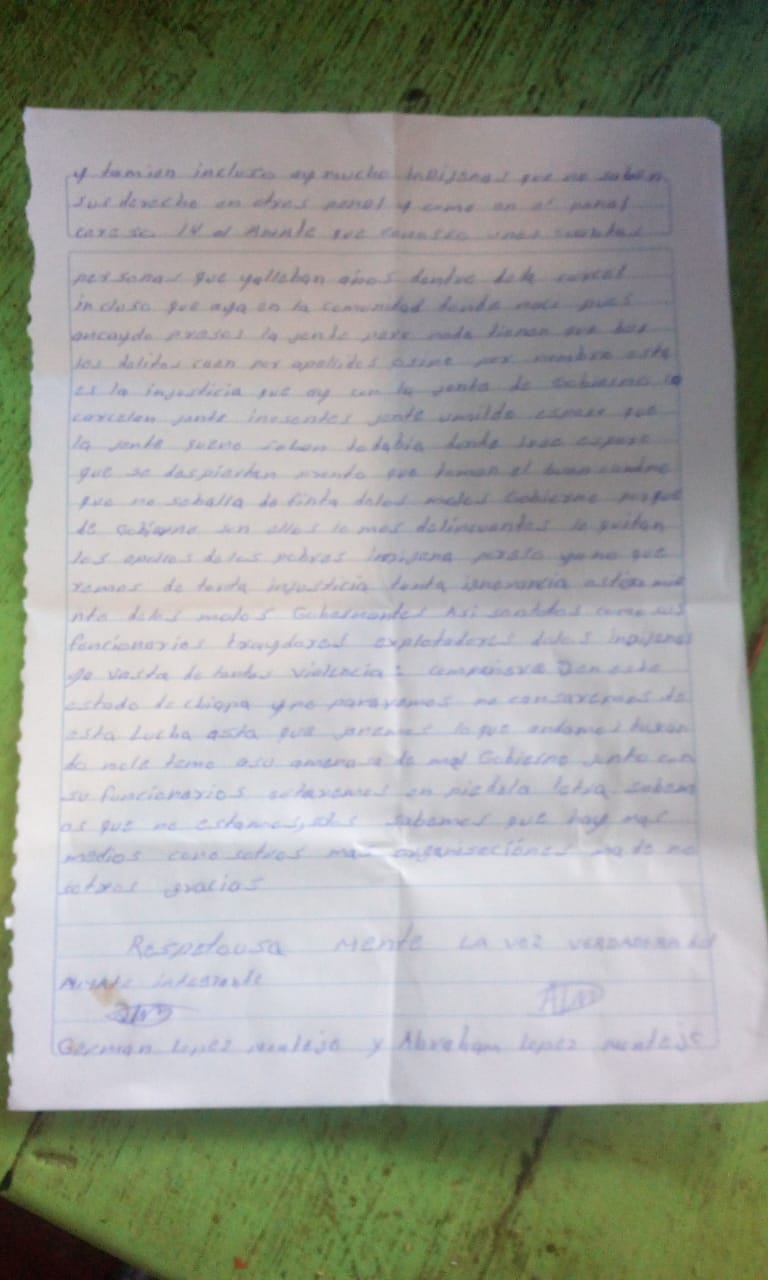 y tamien incluso ay mucho indijenas que no saben
sus derecho en otros penal y como en el penal
cereso 14 el Amate que conosco unos cuantas
personas que yalleban años dentro dela carcel
incluso que aya en la comunidad donde naci pues
ancaydo presos la jente pero nada tienen que ber
los delitos caen por apellidos asimo por nombre esta
es la injusticia que ay con la jenta de Gobierno
carcelan jente inosentes jente umilde espero que
la jente que no saben todabia donde espero
que se despiertan pronto que toman el buen
que no seballa de finta delos malos Gobierno porque
de Gobierno son ellos lo mas delincuentes le quitan
los apollos delos pobres indijena preso ya no que
remos de tanta injusticia tanta ignorancia
nto delos malos Gobernantes Asi como sus
funcionarios traydores explotadores delos indijenas
ya vasta de tantas violencia: den este
estado de chiapa y no pararemos no cansaremos de
esta Lucha asta que lo que andamos buscan
do no le temo asu amenasa de mal Gobierno junto con
su funcionarios estaremos en pie dela lucha sabem
os que no estamos, solos sabemos que hay mas
medios como sotros mas organisaciónes no
sotros gracias
Respetousa Mente LA VOZ VERDADERA del
AMATE integrante
German Lopez Montejo y Abraham Lopez Montejo